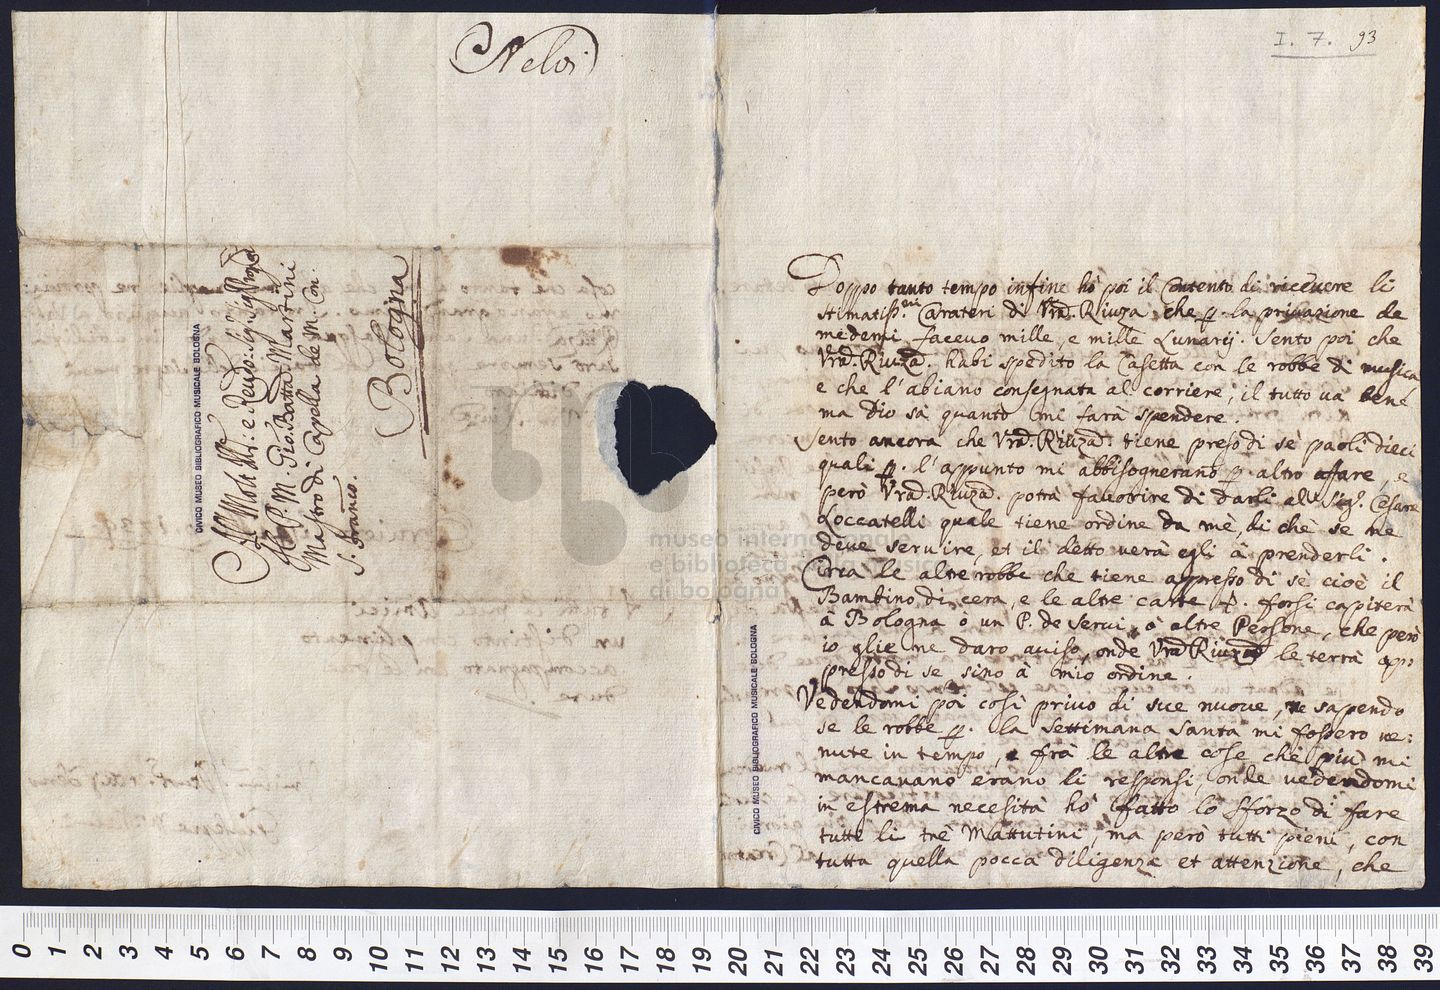 Nelvi
I. 7. 93
All Molto Illr: e Revdo: Sig: Sig:
Il P. M. Gio. Batta Martini
Mastro di Capella de M. Con.
S. Franco.
Bologna
CIVICO MUSEO BIBLIOGRAFICO MUSICALE BOLOGNA
Doppo tanto tempo infine hò poi il contento di ricevere li
stimatiss.mi Carateri di Vrad. Riuza che p. la privazione de
medemi facevo mille, e mille Lunarij. Sento poi che
Vrad. Riuzad. habi spedito la Casetta con le robbe di musica
e che l'abiano consegnata al corriere, il tutto và bene
ma Dio sà quanto mi farà spendere.
Sento ancora che Vrad. Riuzad. tiene preso di sè paoli dieci
quali p. l'appunto mi abbisognerano p. altro affare, e
però Vrad. Riuzad. potrà favorire di darli all Sig.r Cesare
Loccatelli quale tiene ordine da mè, di chè se ne
deve servire, et il detto verà egli à prenderli.
Circa le altre robbe che tiene appresso di sè cioè il
Bambino di cera, e le altre carte p. forsi capiterà
à Bologna ò un P. de Servi, ò altre Persone, che però
io glie ne darò aviso, onde Vrad Riuzad le terrà ap:
presso di se sino à mio ordine.
Vedendomi poi così privo di sue nuove, ne sapendo
se le robbe p. la Settimana Santa mi fossero ve:
nute in tempo, e frà le altre cose che più mi
mancavano erano li responsi, onde vedendomi
in estrema necesità hò fatto lo sforzo di fare
tutte li trè Mattutini, ma però tutti pieni, con
tutta quella pocca diligenza et attenzione, che
CIVICO MUSEO BIBLIOGRAFICO MUSICALE BOLOGNA
museo internazionale
e biblioteca della musica
di bologna
0 1 2 3 4 5 6 7 8 9 10 11 12 13 14 15 16 17 18 19 20 21 22 23 24 25 26 27 28 29 30 31 32 33 34 35 36 37 38 39